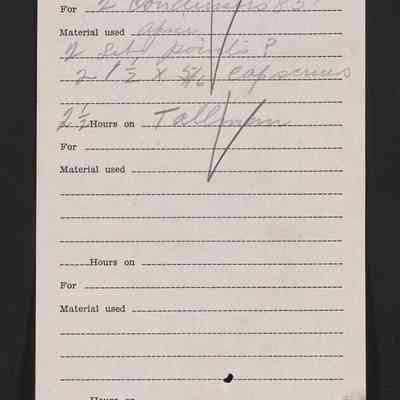 For 2 Condensers 85
Material used
2 Sets points ?
2 1 1/2 x 5/16 Capscrews
2 1/2 Hours on Tallman
For
Material used
Hours on
For
Material used
Hours on